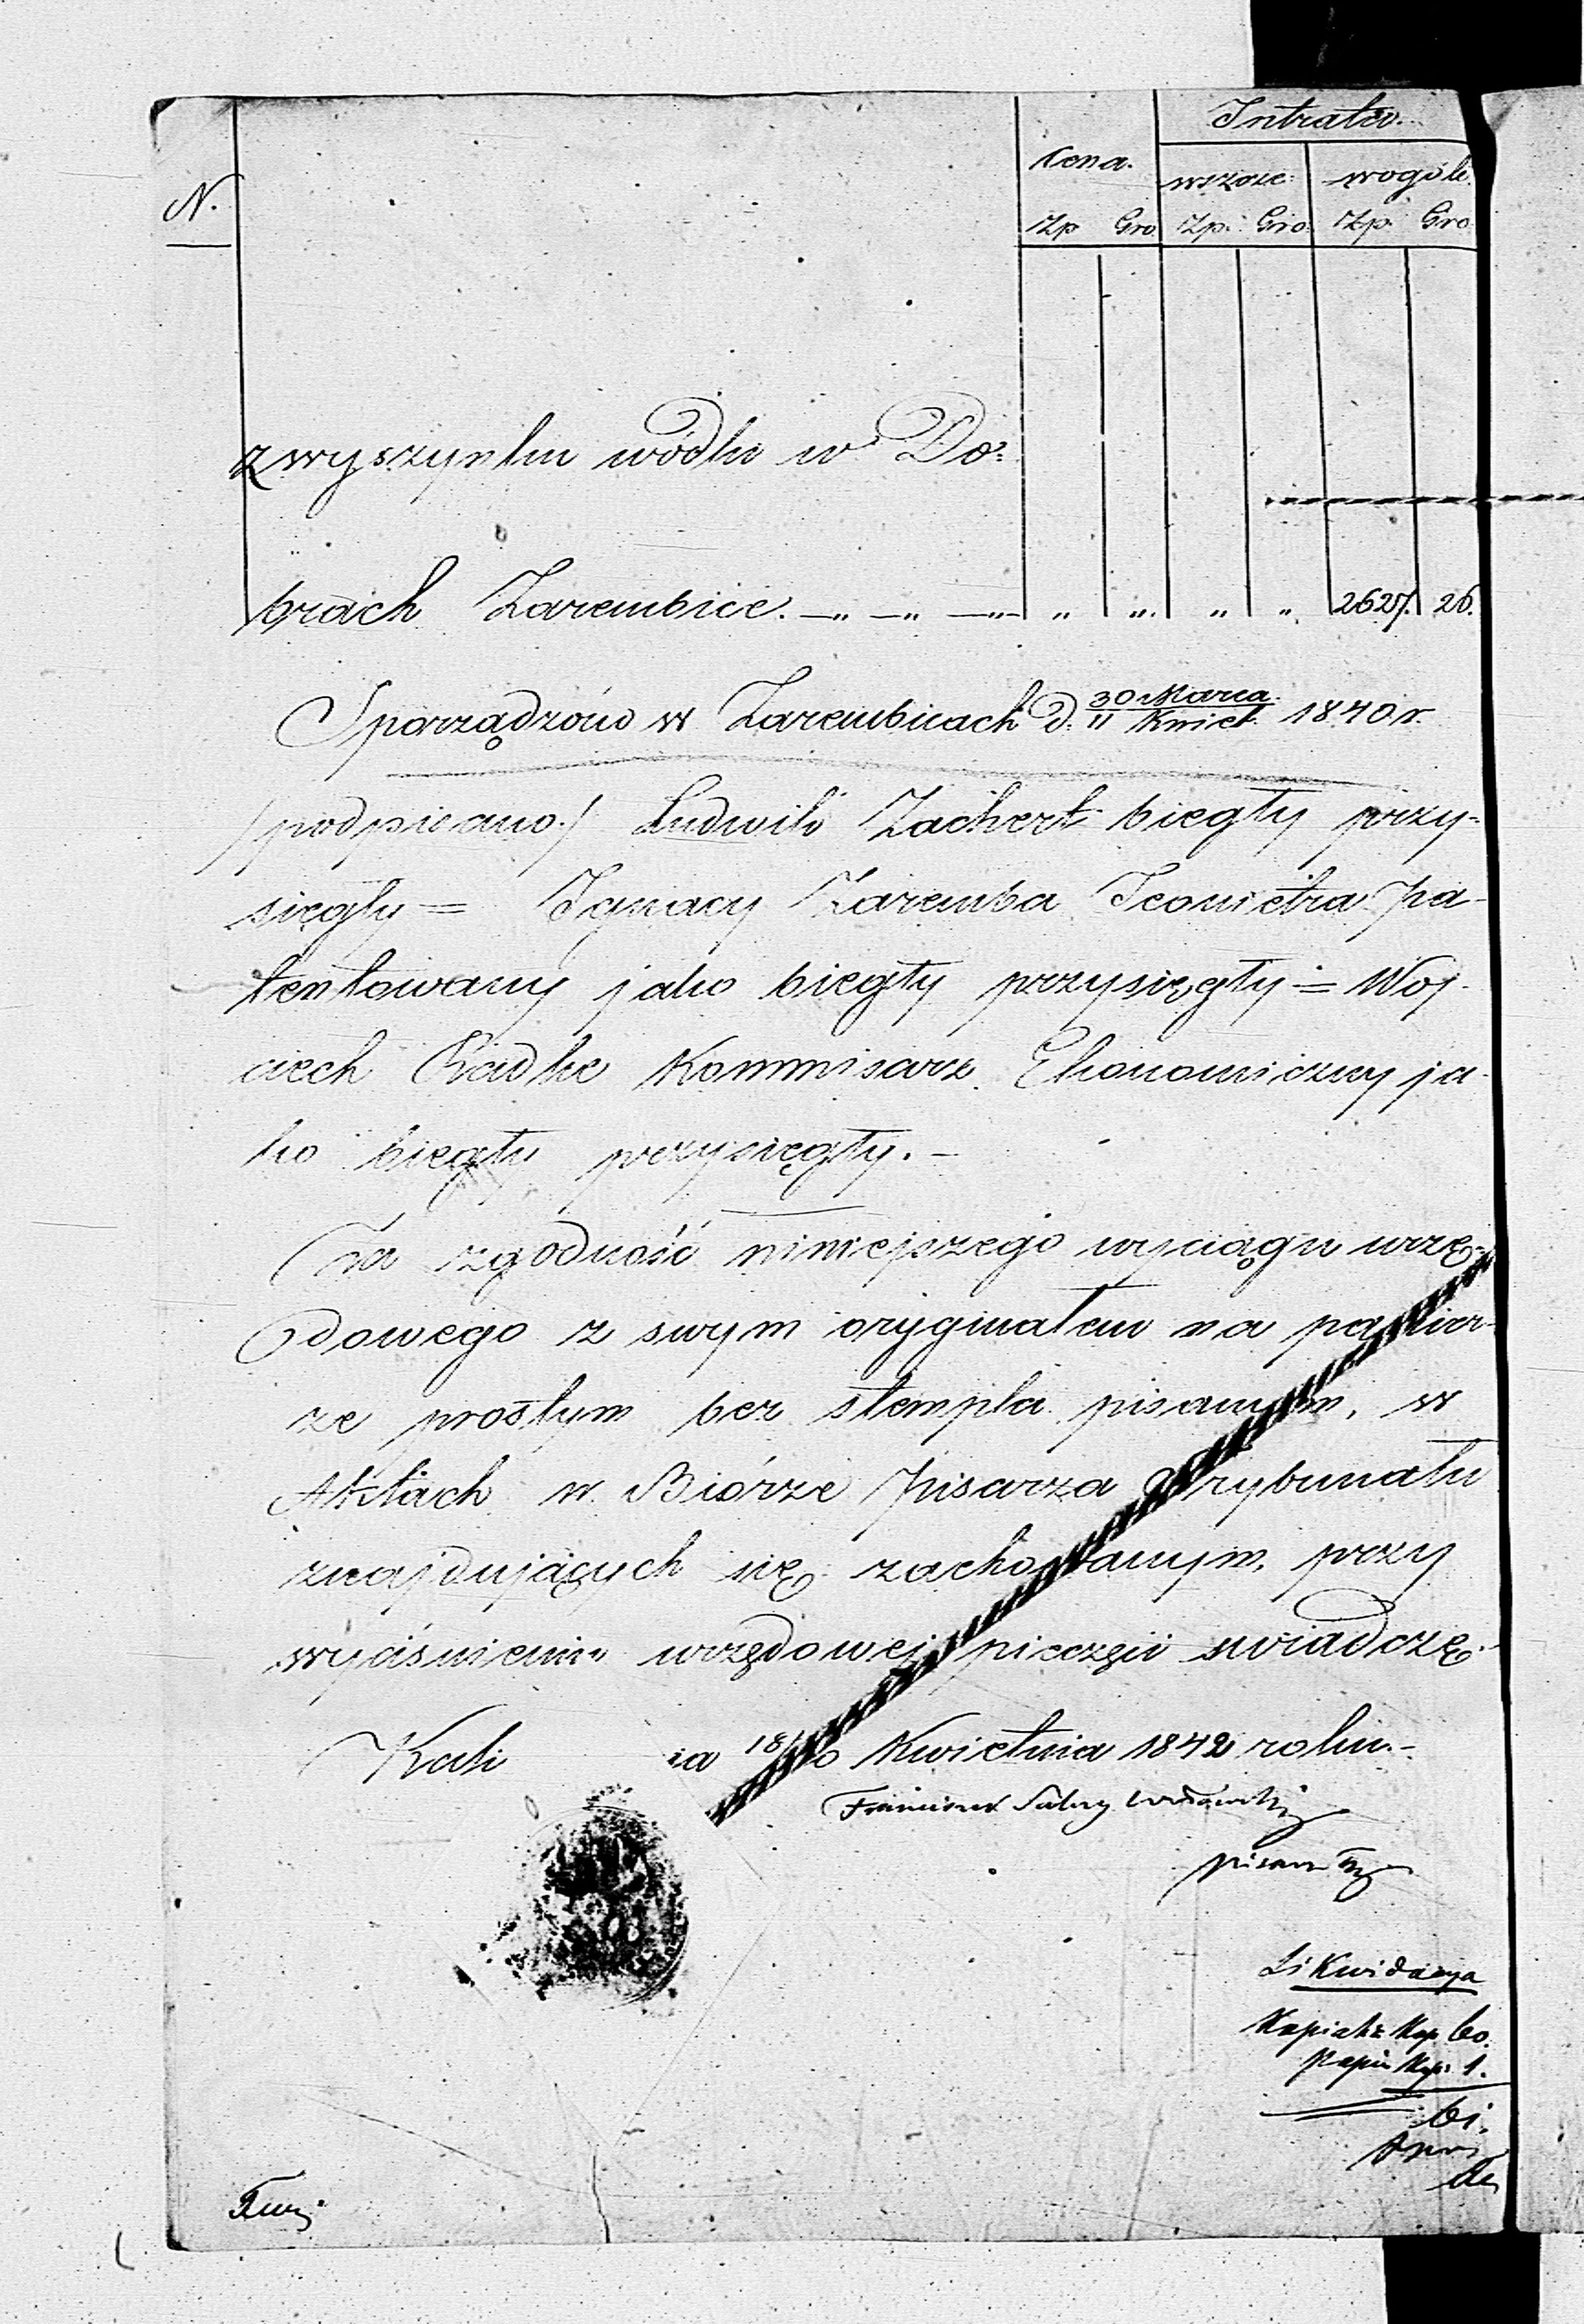 Intrata.
N.
Cena.
wszcze:
wogóle
Zp Gro
Zp. Gro.
Zp. Gro
z wyszynku wódki w Do:
brach Zarembice. —„ —„ —„ „ „. „ „. 2627. 26.
Sporządzono w Zarembicach d. 30 Marca / 11 Kwiet. 1840 r.
/podpisano./ Ludwik Zachert biegły przy-
sięgły = Ignacy Zaremba Jeometra pa-
tentowany jako biegły przysięgły = Woj-
ciech Radke Kommisarz Ekonomiczny ja-
ko biegły przysięgły. —
Za zgodność niniejszego wyciągu urzę-
dowego z swym oryginałem na papier-
ze prostym bez stempla pisanym, w
Aktach w Biórze Pisarza Trybunału
znajdujących się zachowanym, przy
wyciśnieniu urzędowej pieczęci świadczę.
Kali ia 18/30 Kwietnia 1842 roku.-
Franciszek Salezy
pisarz Try
Likwidacya
Kopialia Kop. 60.
Papier Kop. 1.
61.